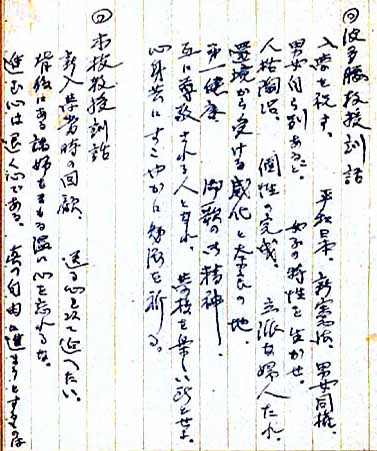 ◎波多腰教授訓話
入学を祝す。 平和日本、新憲法、男女同権、
男女自ら別あると。 女子の特性を生かせ。
人格陶冶。 個性の完成。 立派な婦人たれ。
環境から受ける感化と奈良の地。
第一健康。 御歌の御精神。
互に尊敬される人となれ。 学校を楽しい所とせよ。
心身共にすこやかに勉強を祈る。
◎本校教授訓話
新入学者時の回顧。 送る心を以て迎へたい。
背後にある諸姉をまもる温い心を忘れるな。
進む心は退く心である。 真の自由に進まうとするのは